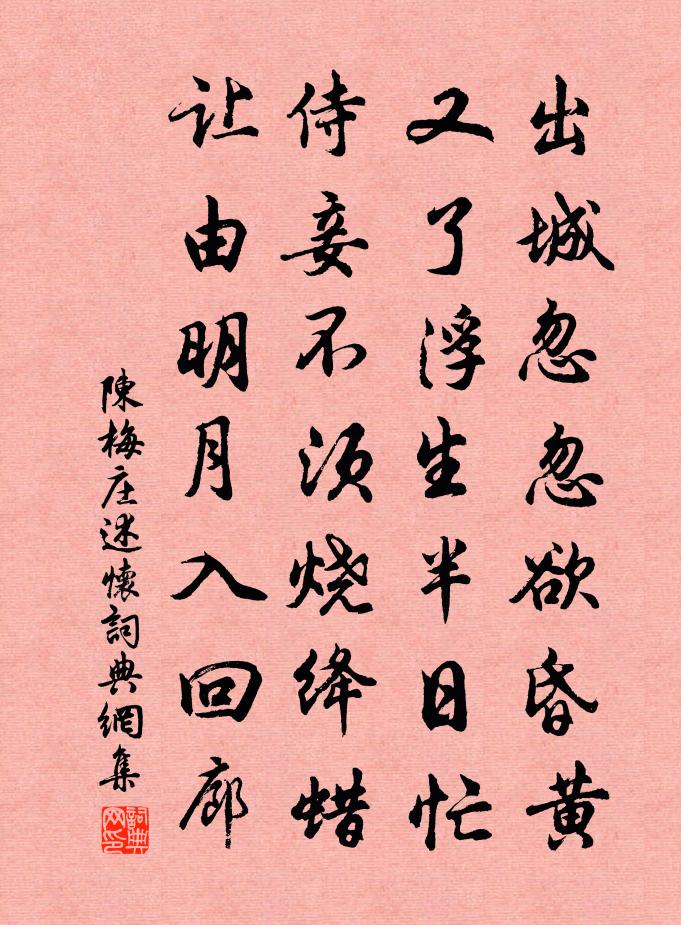 出城忽忽欲昏黄
又了浮生半日忙
侍妾不须烧绛蜡
让由明月入回廊
陳梅庄述懷詞典網集
詞典网印